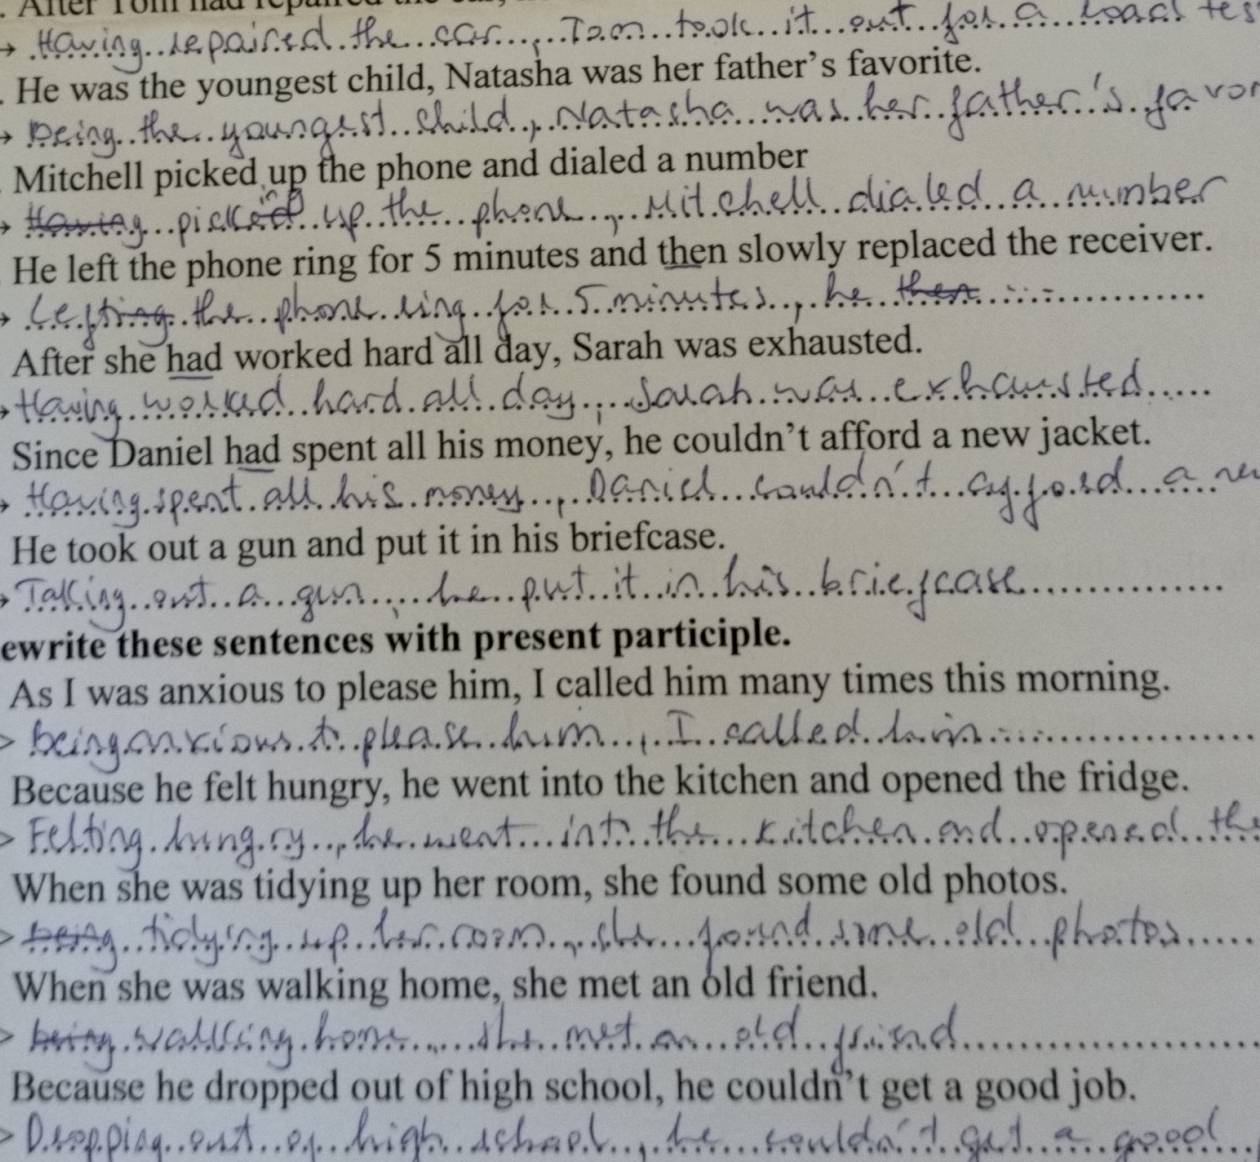 . After Tom had repaired the car,
→ Having repaired the car, Tom took it out for a road tes
. He was the youngest child, Natasha was her father's favorite.
→ Being the youngest child, Natasha was her father's favor
. Mitchell picked up the phone and dialed a number
→ Having picked ing up the phone, Mitchell dialed a number
He left the phone ring for 5 minutes and then slowly replaced the receiver.
→ Lefting the phone ring for 5 minutes, he then
After she had worked hard all day, Sarah was exhausted.
→ Having worked hard all day, Sarah was exhausted
Since Daniel had spent all his money, he couldn't afford a new jacket.
→ Having spent all his money, Daniel couldn't afford a ne
He took out a gun and put it in his briefcase.
→ Taking out a gun, he put it in his briefcase
ewrite these sentences with present participle.
As I was anxious to please him, I called him many times this morning.
> being anxious to please him, I called him
Because he felt hungry, he went into the kitchen and opened the fridge.
> Felting hungry, he went into the kitchen and opened the
When she was tidying up her room, she found some old photos.
> being tidying up her room, she found some old photos
When she was walking home, she met an old friend.
> being walking home, she met an old friend
Because he dropped out of high school, he couldn't get a good job.
> Dropping out of high school, he couldn't get a good